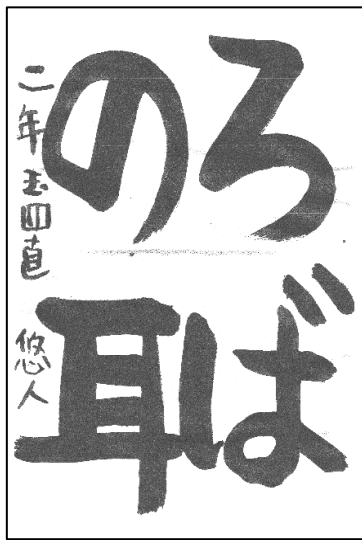 ろば
の耳
二年玉置 悠人